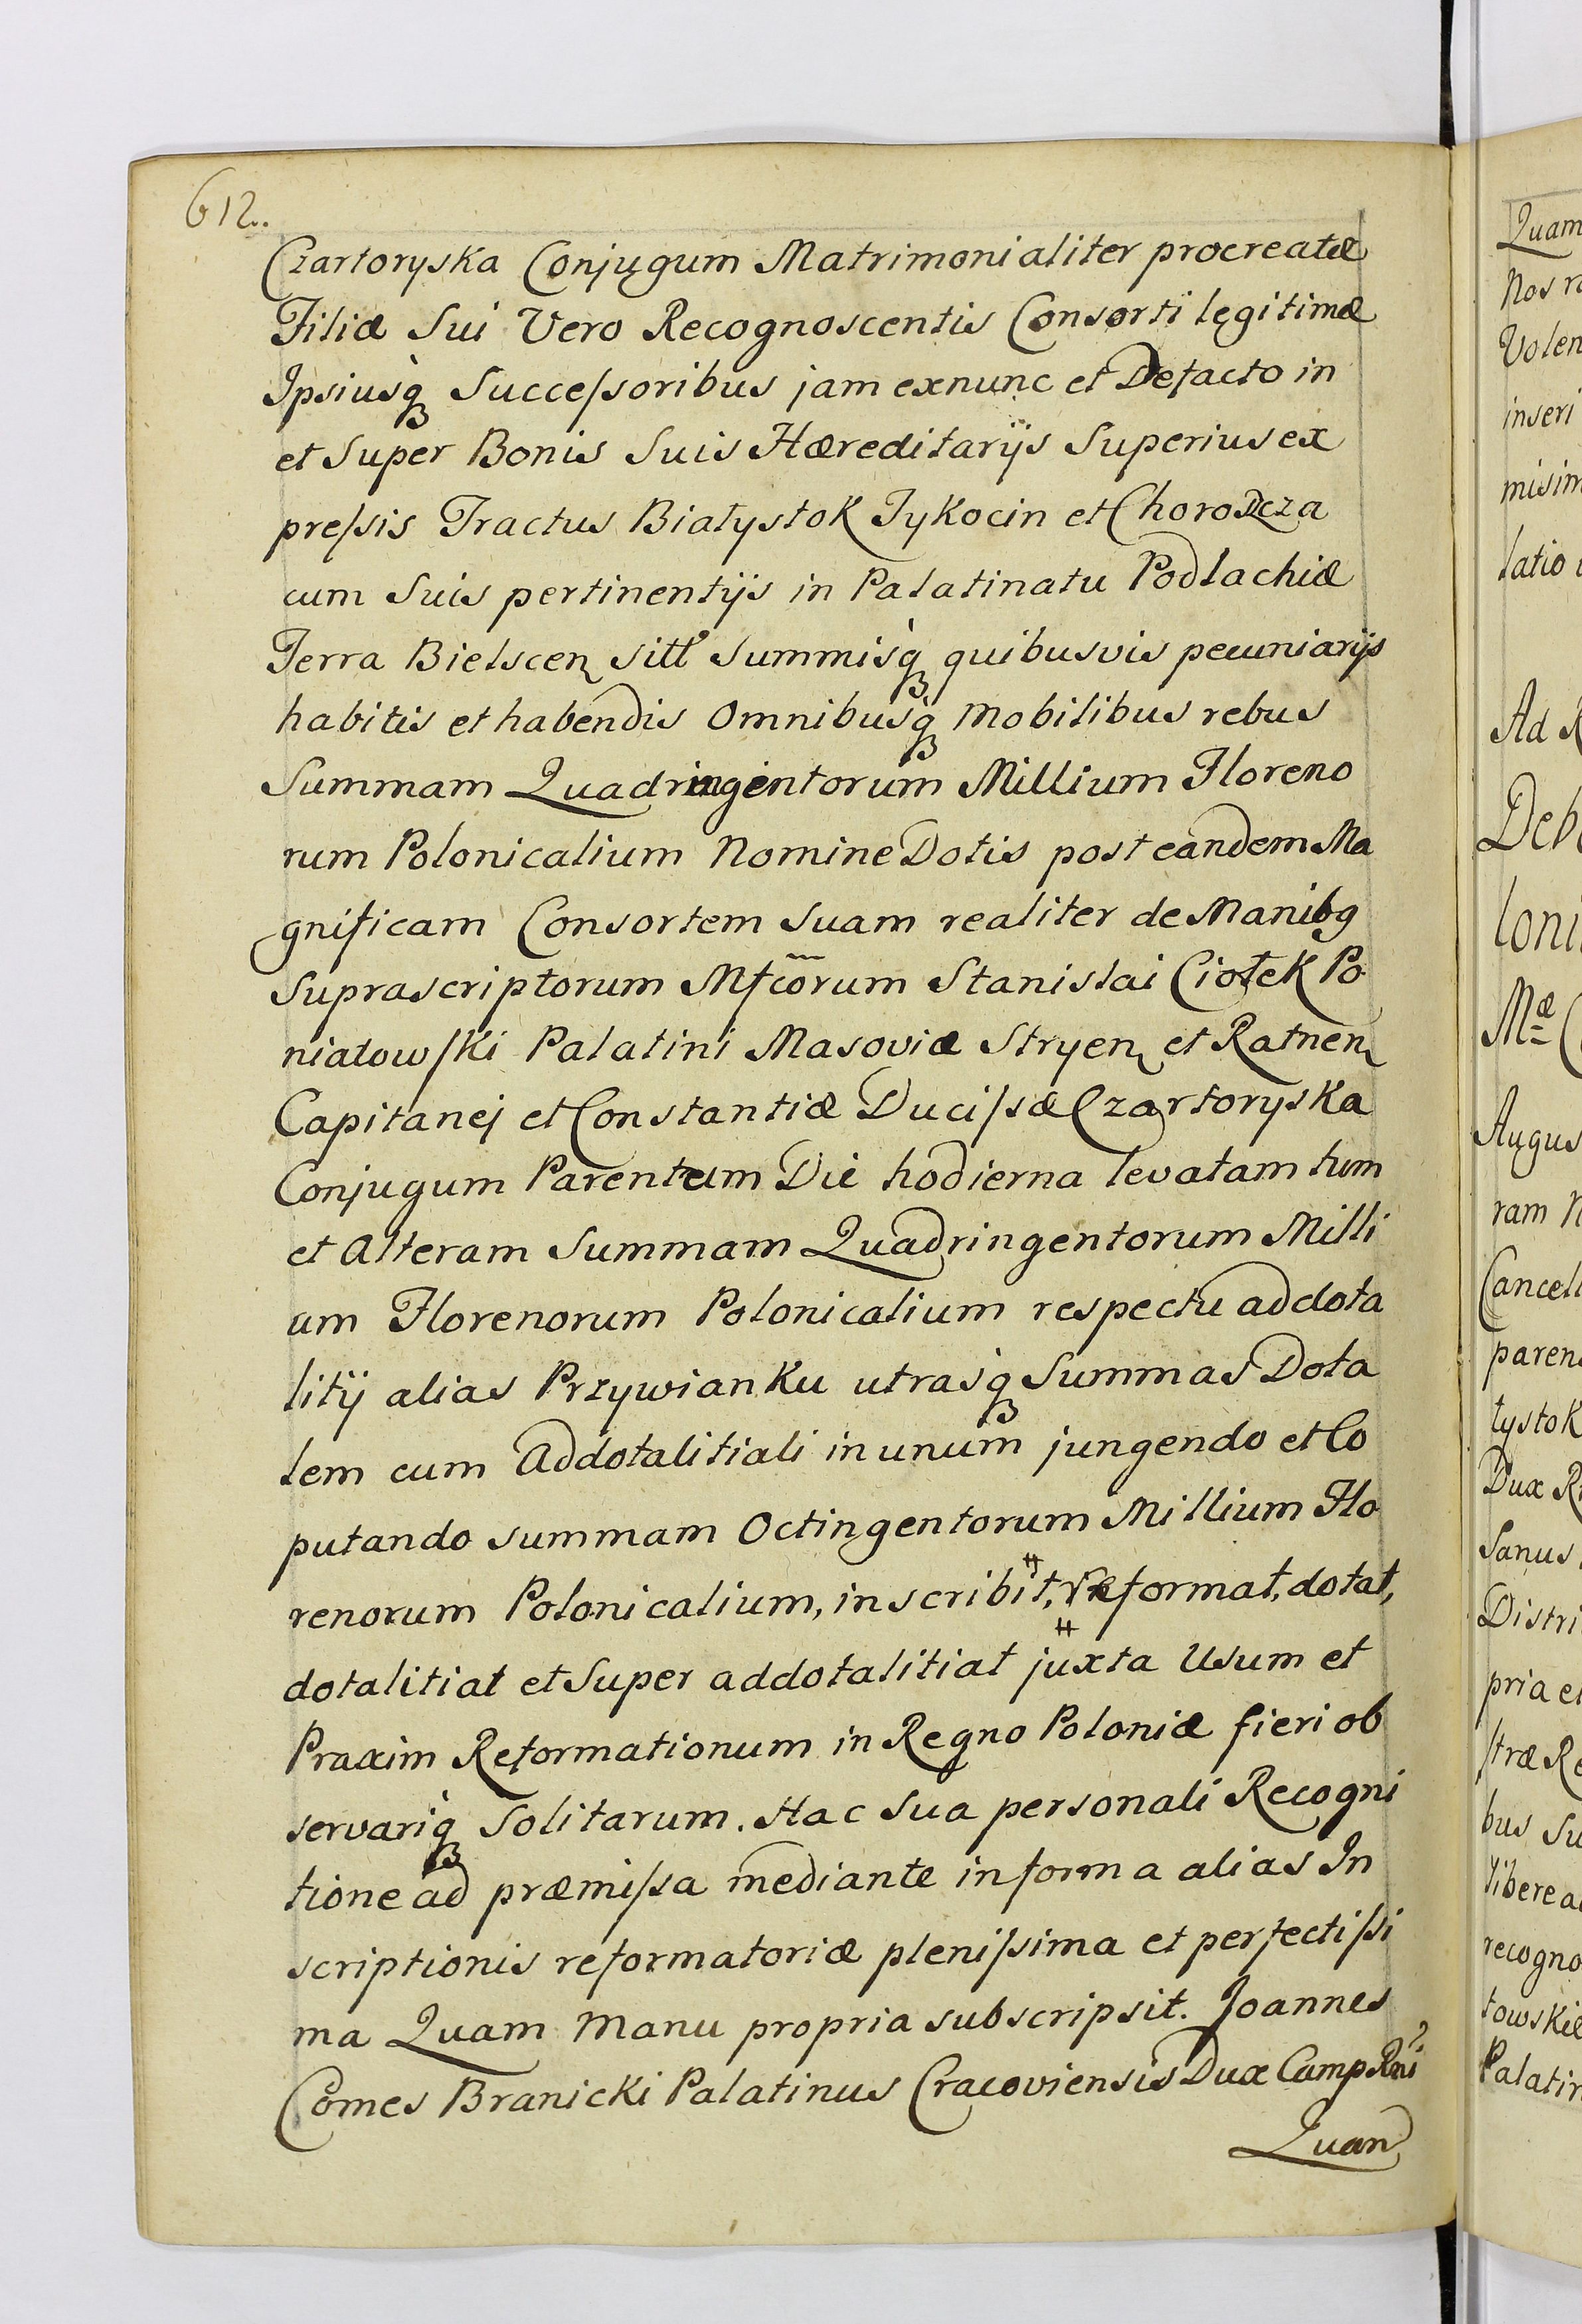 612..
Czartoryska Conjugum Matrimonialiter procreatæ
Filiæ Sui Vero Recognoscentis Consorti legitimæ
Ipsiusq̃ Succeſsoribus jam exnunc et Defacto in
et Super Bonis Suis Hæreditarijs Superius ex
preſsis Tractus Białystok Tykocin et Chorodcza
cum Suis pertinentijs in Palatinatu Podlachiæ
Terra Bielscen sitt Summisq̃ quibusvis pecuniarijs
habitis et habendis Omnibusq̃ Mobilibus rebus
Summam Quadringentorum Millium Floreno
rum Polonicalium Nomine Dotis post eandem Ma
gnificam Consortem Suam realiter de Manibg
Suprascriptorum Mfcõrum Stanislai Ciołek Po
niatowſki Palatini Masoviæ Stryen et Ratnen
Capitanej et Constantiæ Duciſsæ Czartoryska
Conjugum Parentum Die hodierna levatam tum
et Alteram Summam Quadringentorum Milli
um Florenorum Polonicalium respectu addota
litij alias Przywianku utrasq̃ Summas Dota
lem cum Addotalitiali in unum jungendo et Co
putando summam Octingentorum Millium Flo
renorum Polonicalium, inscribit, Reformat, dotat,
dotalitiat et Super addotalitiat juxta Usum et
Praxim Reformationum in Regno Poloniæ fieri ob
servariq̃ Solitarum. Hac Sua personali Recogni
tione ad præmiſsa mediante in forma alias In
scriptionis reformatoriæ pleniſsima et perfectiſsi
ma Quam Manu propria subscripsit. Joannes
Comes Branicki Palatinus Cracoviensis Dux Camp Rni
Quam
Quam
Nos
Volen
inseri
misim
latio
Ad
Deb
loni
Mæ
Augus
ram
Cancell
paren
łystok
Dux
Sanus
Distri
pria et
ſtræ Re
bus Su
libere a
recogno
towskie
Palatin